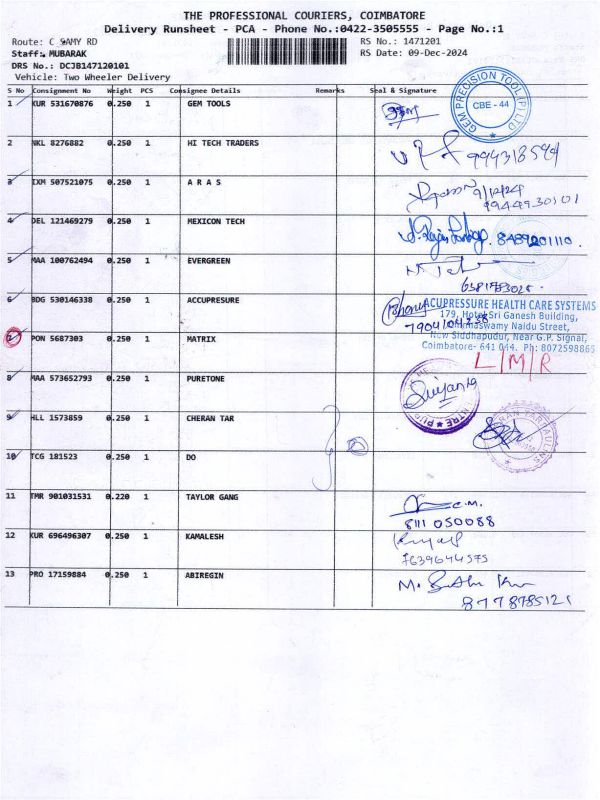 THE PROFESSIONAL COURIERS, COIMBATORE
Delivery Runsheet - PCA - Phone No.:0422-3505555 - Page No.:1
Route: C SAMY RD
RS No.: 1471201
Staff: MUBARAK
RS Date: 09-Dec-2024
DRS No.: DCJB147120101
Vehicle: Two Wheeler Delivery
S No Consignment No Weight PCS Consignee Details Remarks Seal & Signature
1 KUR 531670876 0.250 1 GEM TOOLS
GEM PRECISION TOOL (P) LTD
CBE - 44
2 NKL 8276882 0.250 1 HI TECH TRADERS
3 IXM 507521075 0.250 1 A R A S
9/12/24
4 DEL 121469279 0.250 1 MEXICON TECH
8489201110
5 MAA 100762494 0.250 1 EVERGREEN
6 BDG 530146338 0.250 1 ACCUPRESURE
ACUPRESSURE HEALTH CARE SYSTEMS
179, Hotel Sri Ganesh Building,
New Siddhapudur, Near G.P. Signal,
Coimbatore- 641 044. Ph: 8072598865
7 PON 5687303 0.250 1 MATRIX
L/M/R
8 MAA 573652793 0.250 1 PURETONE
9 HLL 1573859 0.250 1 CHERAN TAR
10 TCG 181523 0.250 1 DO
11 TMR 901031531 0.220 1 TAYLOR GANG
8111 050088
12 KUR 696496307 0.250 1 KAMALESH
7639644575
13 PRO 17159884 0.250 1 ABIREGIN
8778785121